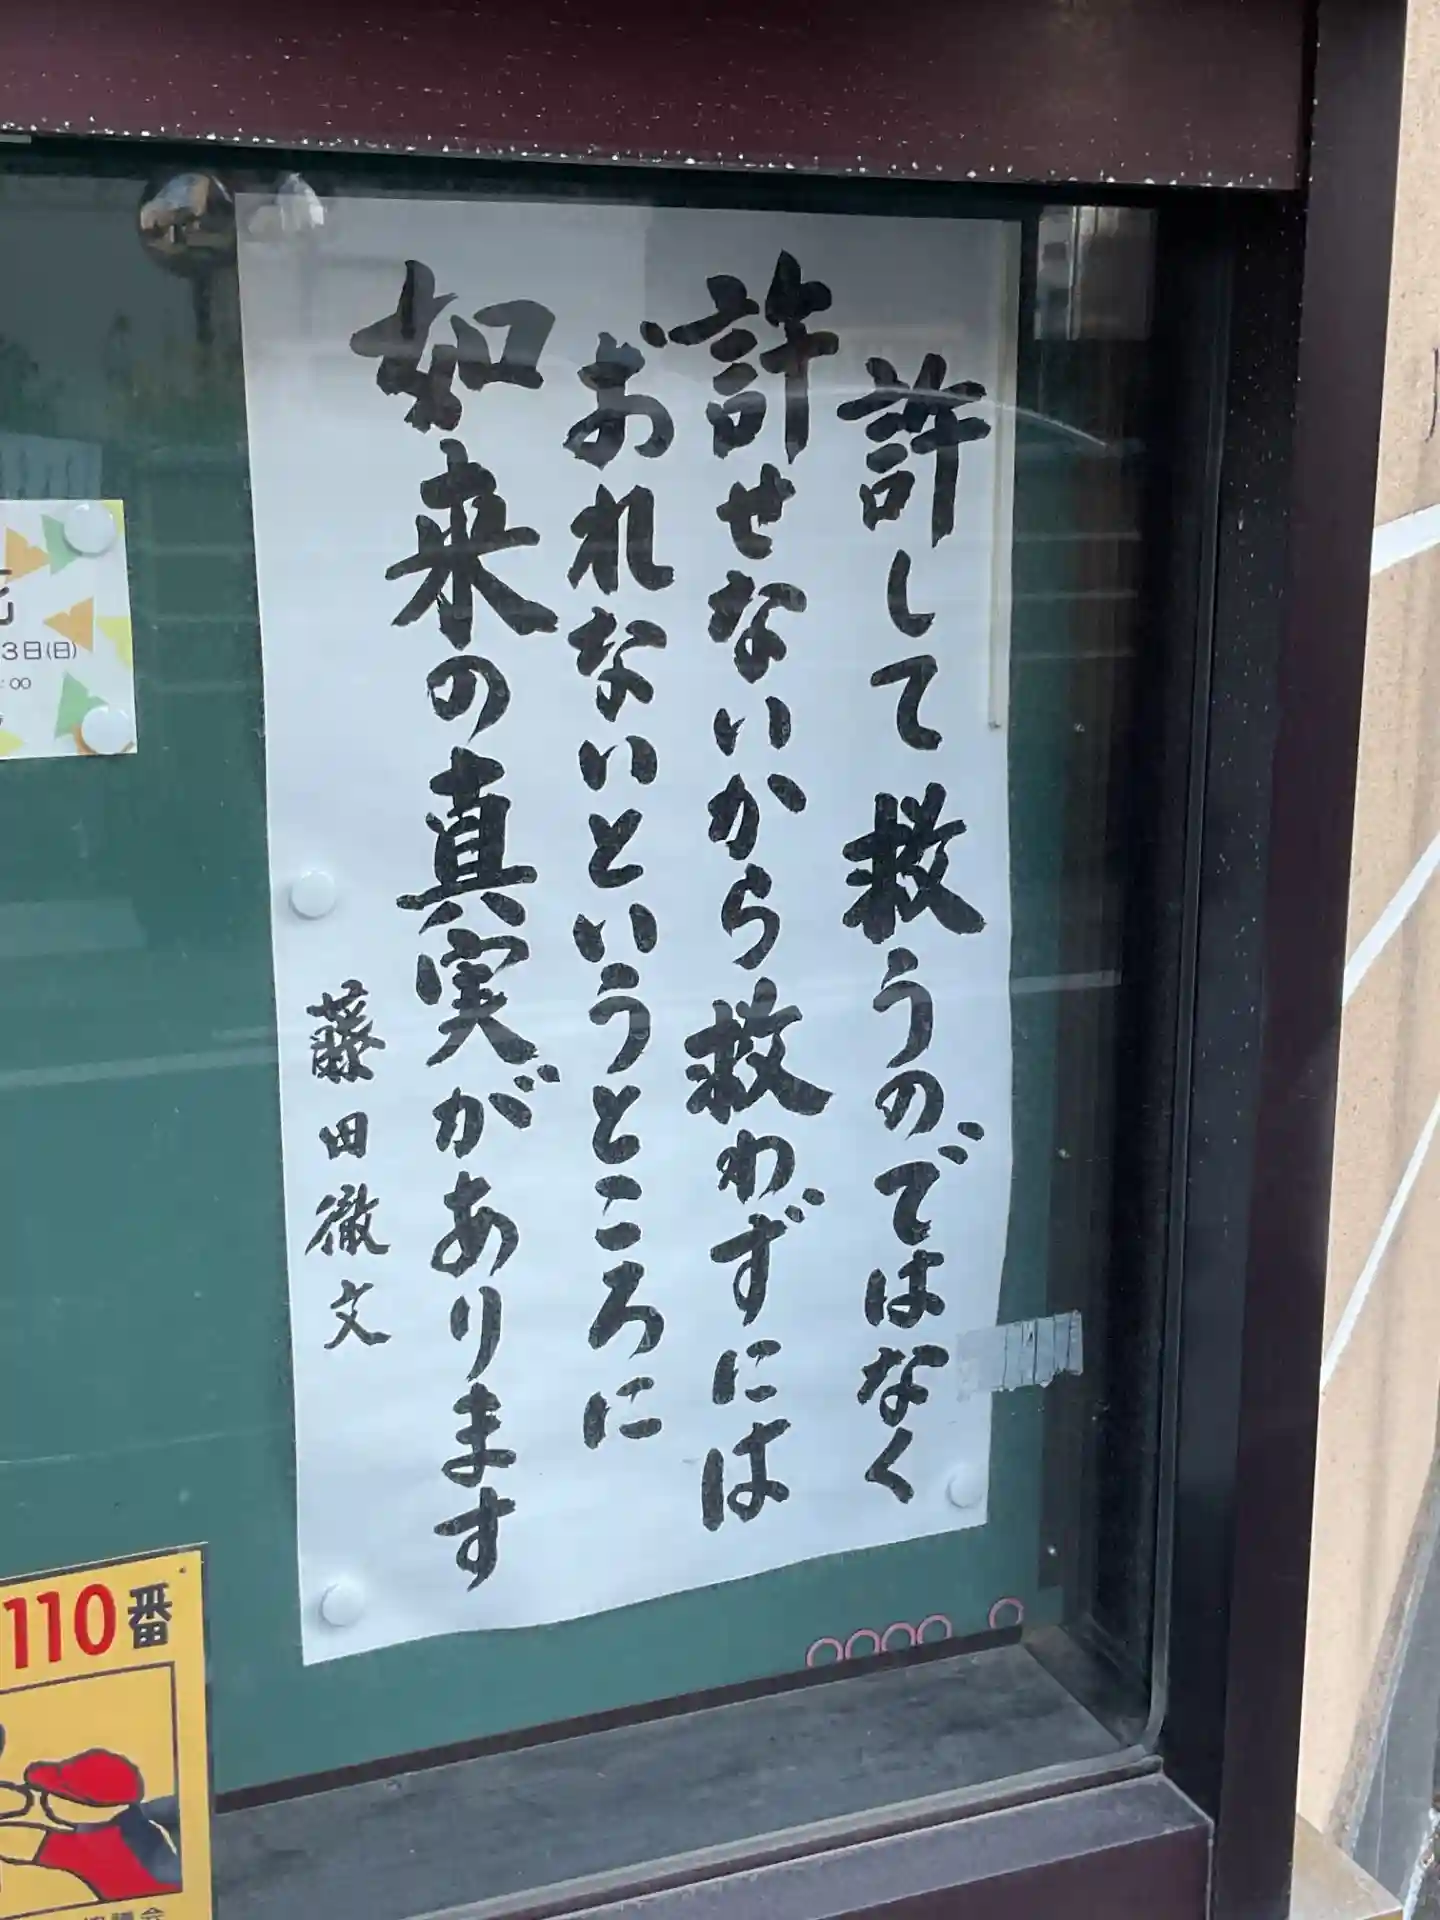 許して救うのではなく
許せないから救わずには
おれないというところに
如来の真実があります
藤田徹文
3日(日)
:00
110番